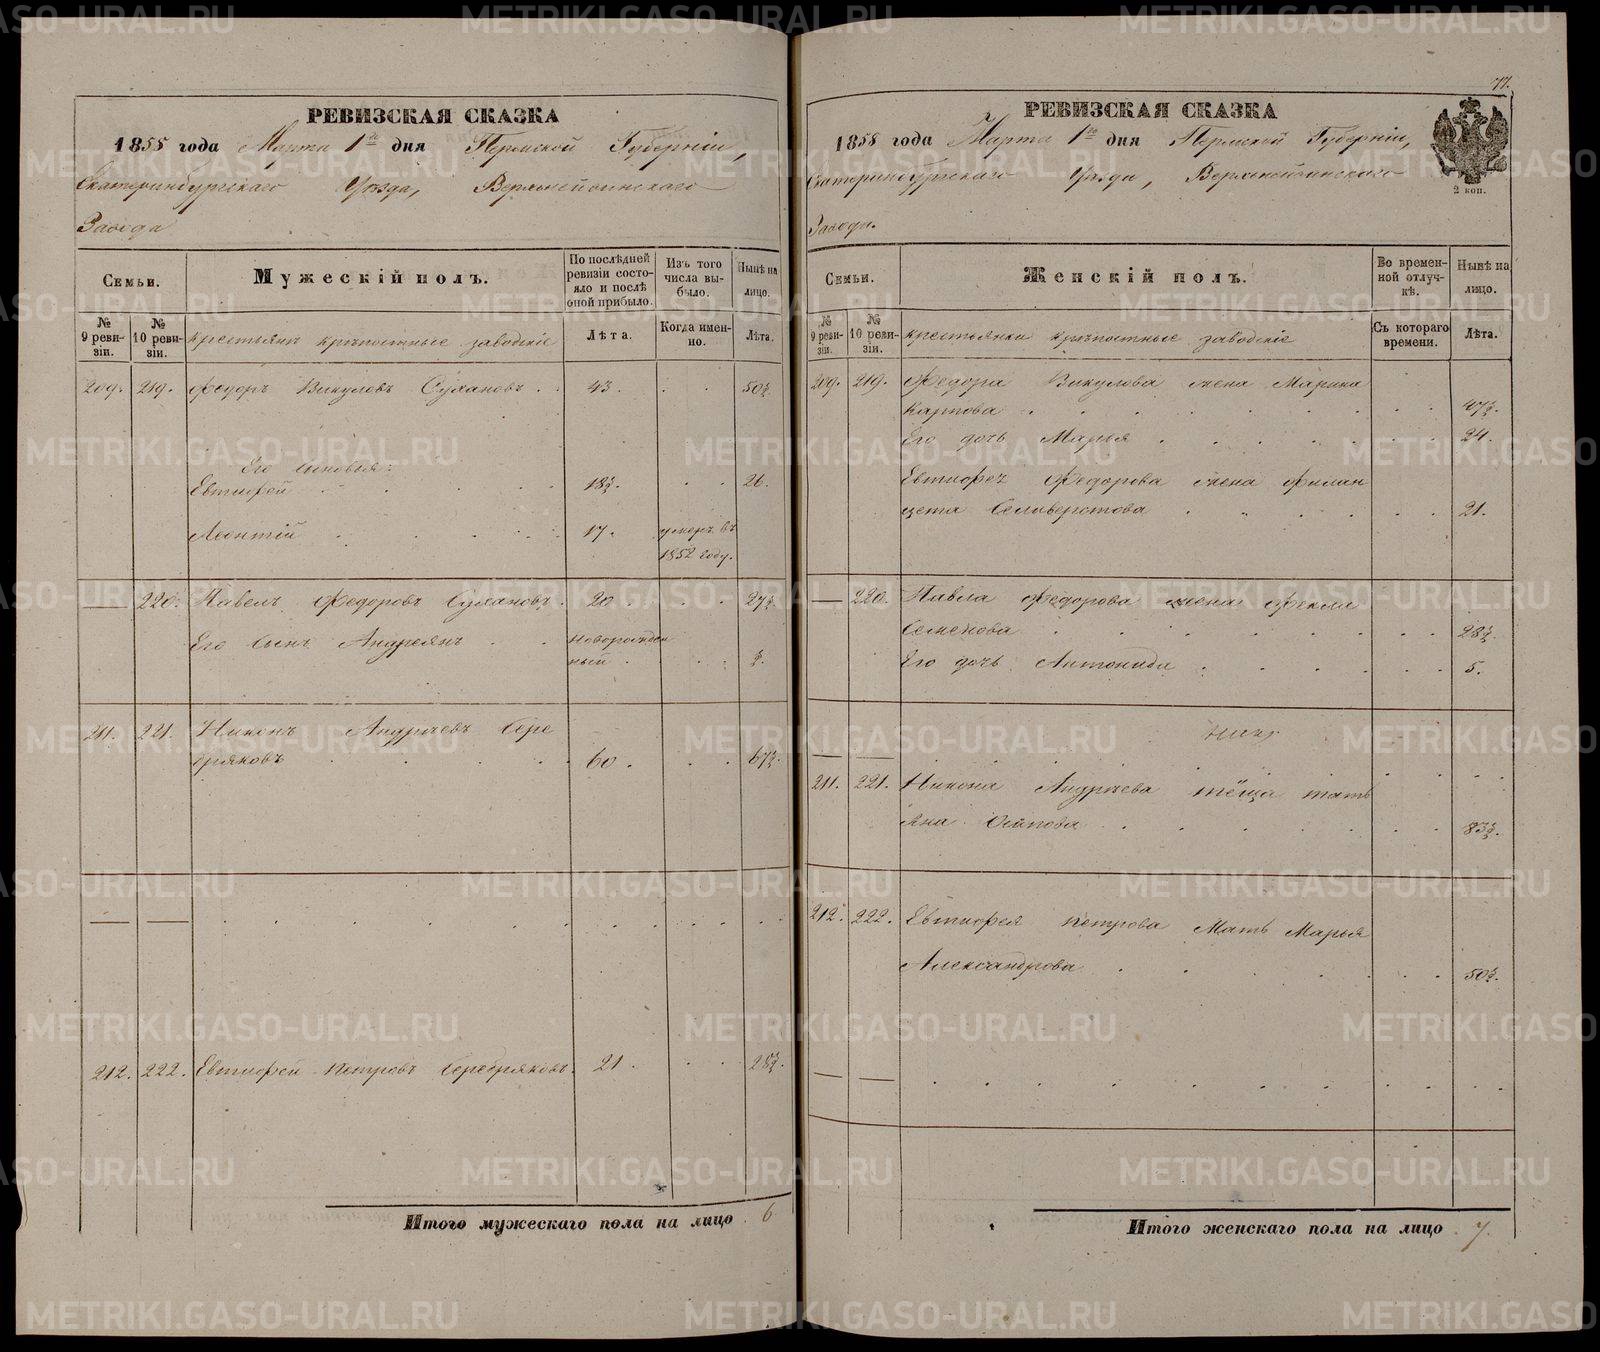 РЕВИЗСКАЯ СКАЗКА
1855 года Марта 1го дня Пермской Губерніи,
Екатеринбургскаго Уѣзда, Верхнейвинскаго
Завода
Семьи.
Мужескій полъ.
По послѣдней ревизіи состояло и послѣ оной прибыло.
Изъ того числа выбыло.
Нынѣ на лицо.
№ 9 ревизіи.
№ 10 ревизіи.
крестьянъ крѣпостные заводскіе
Лѣта.
Когда именно.
Лѣта.
209. 219. Федоръ Викуловъ Сухановъ 43. 50½
Его сыновья:
Евтифей 18½. 26.
Леонтій 17. умеръ въ
1852 году.
220. Павелъ Федоровъ Сухановъ. 20 27½
Его сынъ Андреянъ новорожден
ный ½.
211. 221. Никонъ Андрѣевъ Сере
бряковъ 60. 67½.
212. 222. Евтифей Петровъ Серебряковъ. 21. 28½.
Итого мужескаго пола на лицо 6
77.
РЕВИЗСКАЯ СКАЗКА
1858 года Марта 1го дня Пермской Губерніи,
Екатеринбургскаго Уѣзда, Верхнейвинскаго
Завода.
2 коп.
Семьи.
Женскій полъ.
Во временной отлучкѣ.
Нынѣ на лицо.
№ 9 ревизіи.
№ 10 ревизіи.
крестьянки крѣпостные заводскіе
Съ котораго времени.
Лѣта.
209. 219. Федора Викулова жена Марина
Карпова 47½.
Его дочь Марья 24.
Евтифея Федорова жена Филан
цета Селиверстова 21.
220. Павла Федорова жена Фекла
Семенова 28½.
Его дочь Антонида 5.
211. 221. Никона Андрѣева тёща Тать
яна Осипова 83½.
212. 222. Евтифея Петрова Мать Марья
Александрова 50½.
Итого женскаго пола на лицо 7.
METRIKI.GASO-URAL.RU